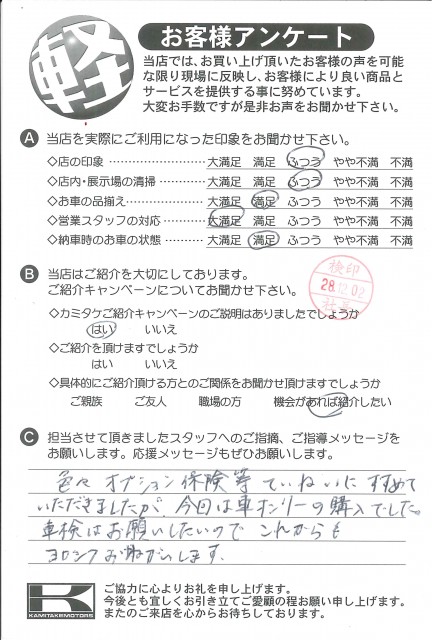 軽
お客様アンケート
当店では、お買い上げ頂いたお客様の声を可能
な限り現場に反映し、お客様により良い商品と
サービスを提供する事に努めています。
大変お手数ですが是非お声をお聞かせ下さい。
A 当店を実際にご利用になった印象をお聞かせ下さい。
◇店の印象 ‥‥‥‥‥‥‥‥ 大満足 満足 ふつう やや不満 不満
◇店内・展示場の清掃 ‥‥‥‥ 大満足 満足 ふつう やや不満 不満
◇お車の品揃え ‥‥‥‥‥‥ 大満足 満足 ふつう やや不満 不満
◇営業スタッフの対応 ‥‥‥‥ 大満足 満足 ふつう やや不満 不満
◇納車時のお車の状態 ‥‥‥‥ 大満足 満足 ふつう やや不満 不満
B 当店はご紹介を大切にしております。
ご紹介キャンペーンについてお聞かせ下さい。
検印
28.12.02
社長
◇カミタケご紹介キャンペーンのご説明はありましたでしょうか
はい いいえ
◇ご紹介を頂けますでしょうか
はい いいえ
◇具体的にご紹介頂ける方とのご関係をお聞かせ頂けますでしょうか
ご親族 ご友人 職場の方 機会があれば紹介したい
C 担当させて頂きましたスタッフへのご指摘、ご指導メッセージを
お願いします。応援メッセージもぜひお願いします。
色々オプション保険等ていねいにすすめて
いただきましたが、今回は車オンリーの購入でした。
車検はお願いしたいのでこれからも
ヨロシクお願がいします。
K
KAMITAKEMOTORS
ご協力に心よりお礼を申し上げます。
今後とも宜しくお引き立てご愛顧の程お願い申し上げます。
またのご来店を心からお待ちしております。